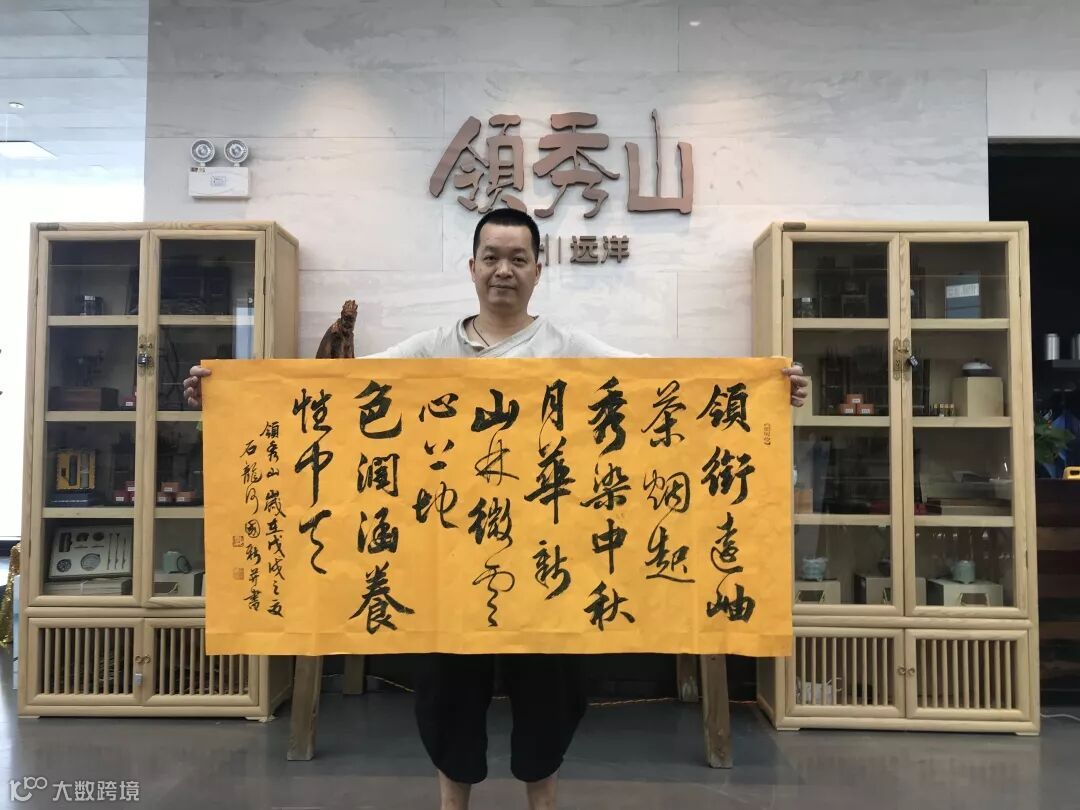 領秀山
远洋
領銜遠岫
茶烟起
秀染中秋
月華新
山林微雲
心上地
色潤涵養
性中天
領秀山 歲在戊戌之夏
石龍 國 并書
大数跨境